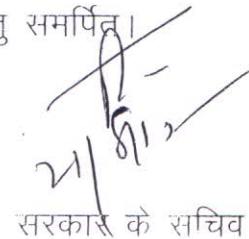 समर्पित।
सरकार के सचिव